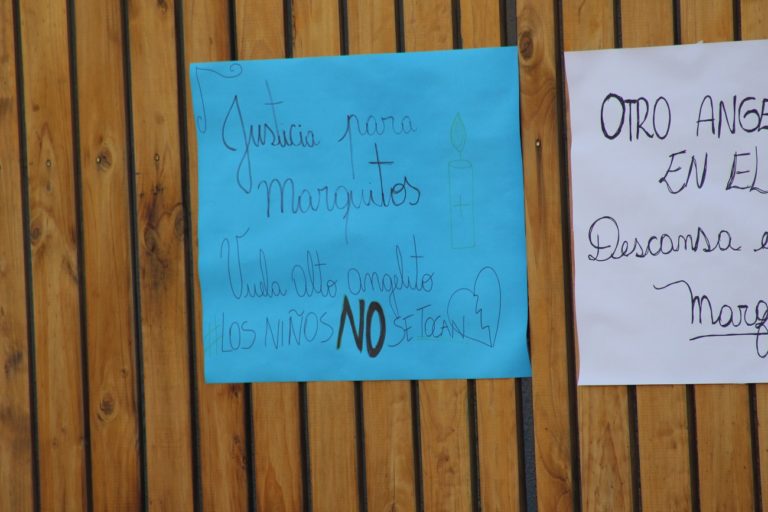 Justicia para
Marquitos
Vuela alto angelito
#LOS NIÑOS NO SE TOCAN
OTRO ANGE
EN EL
Descansa e
Marq